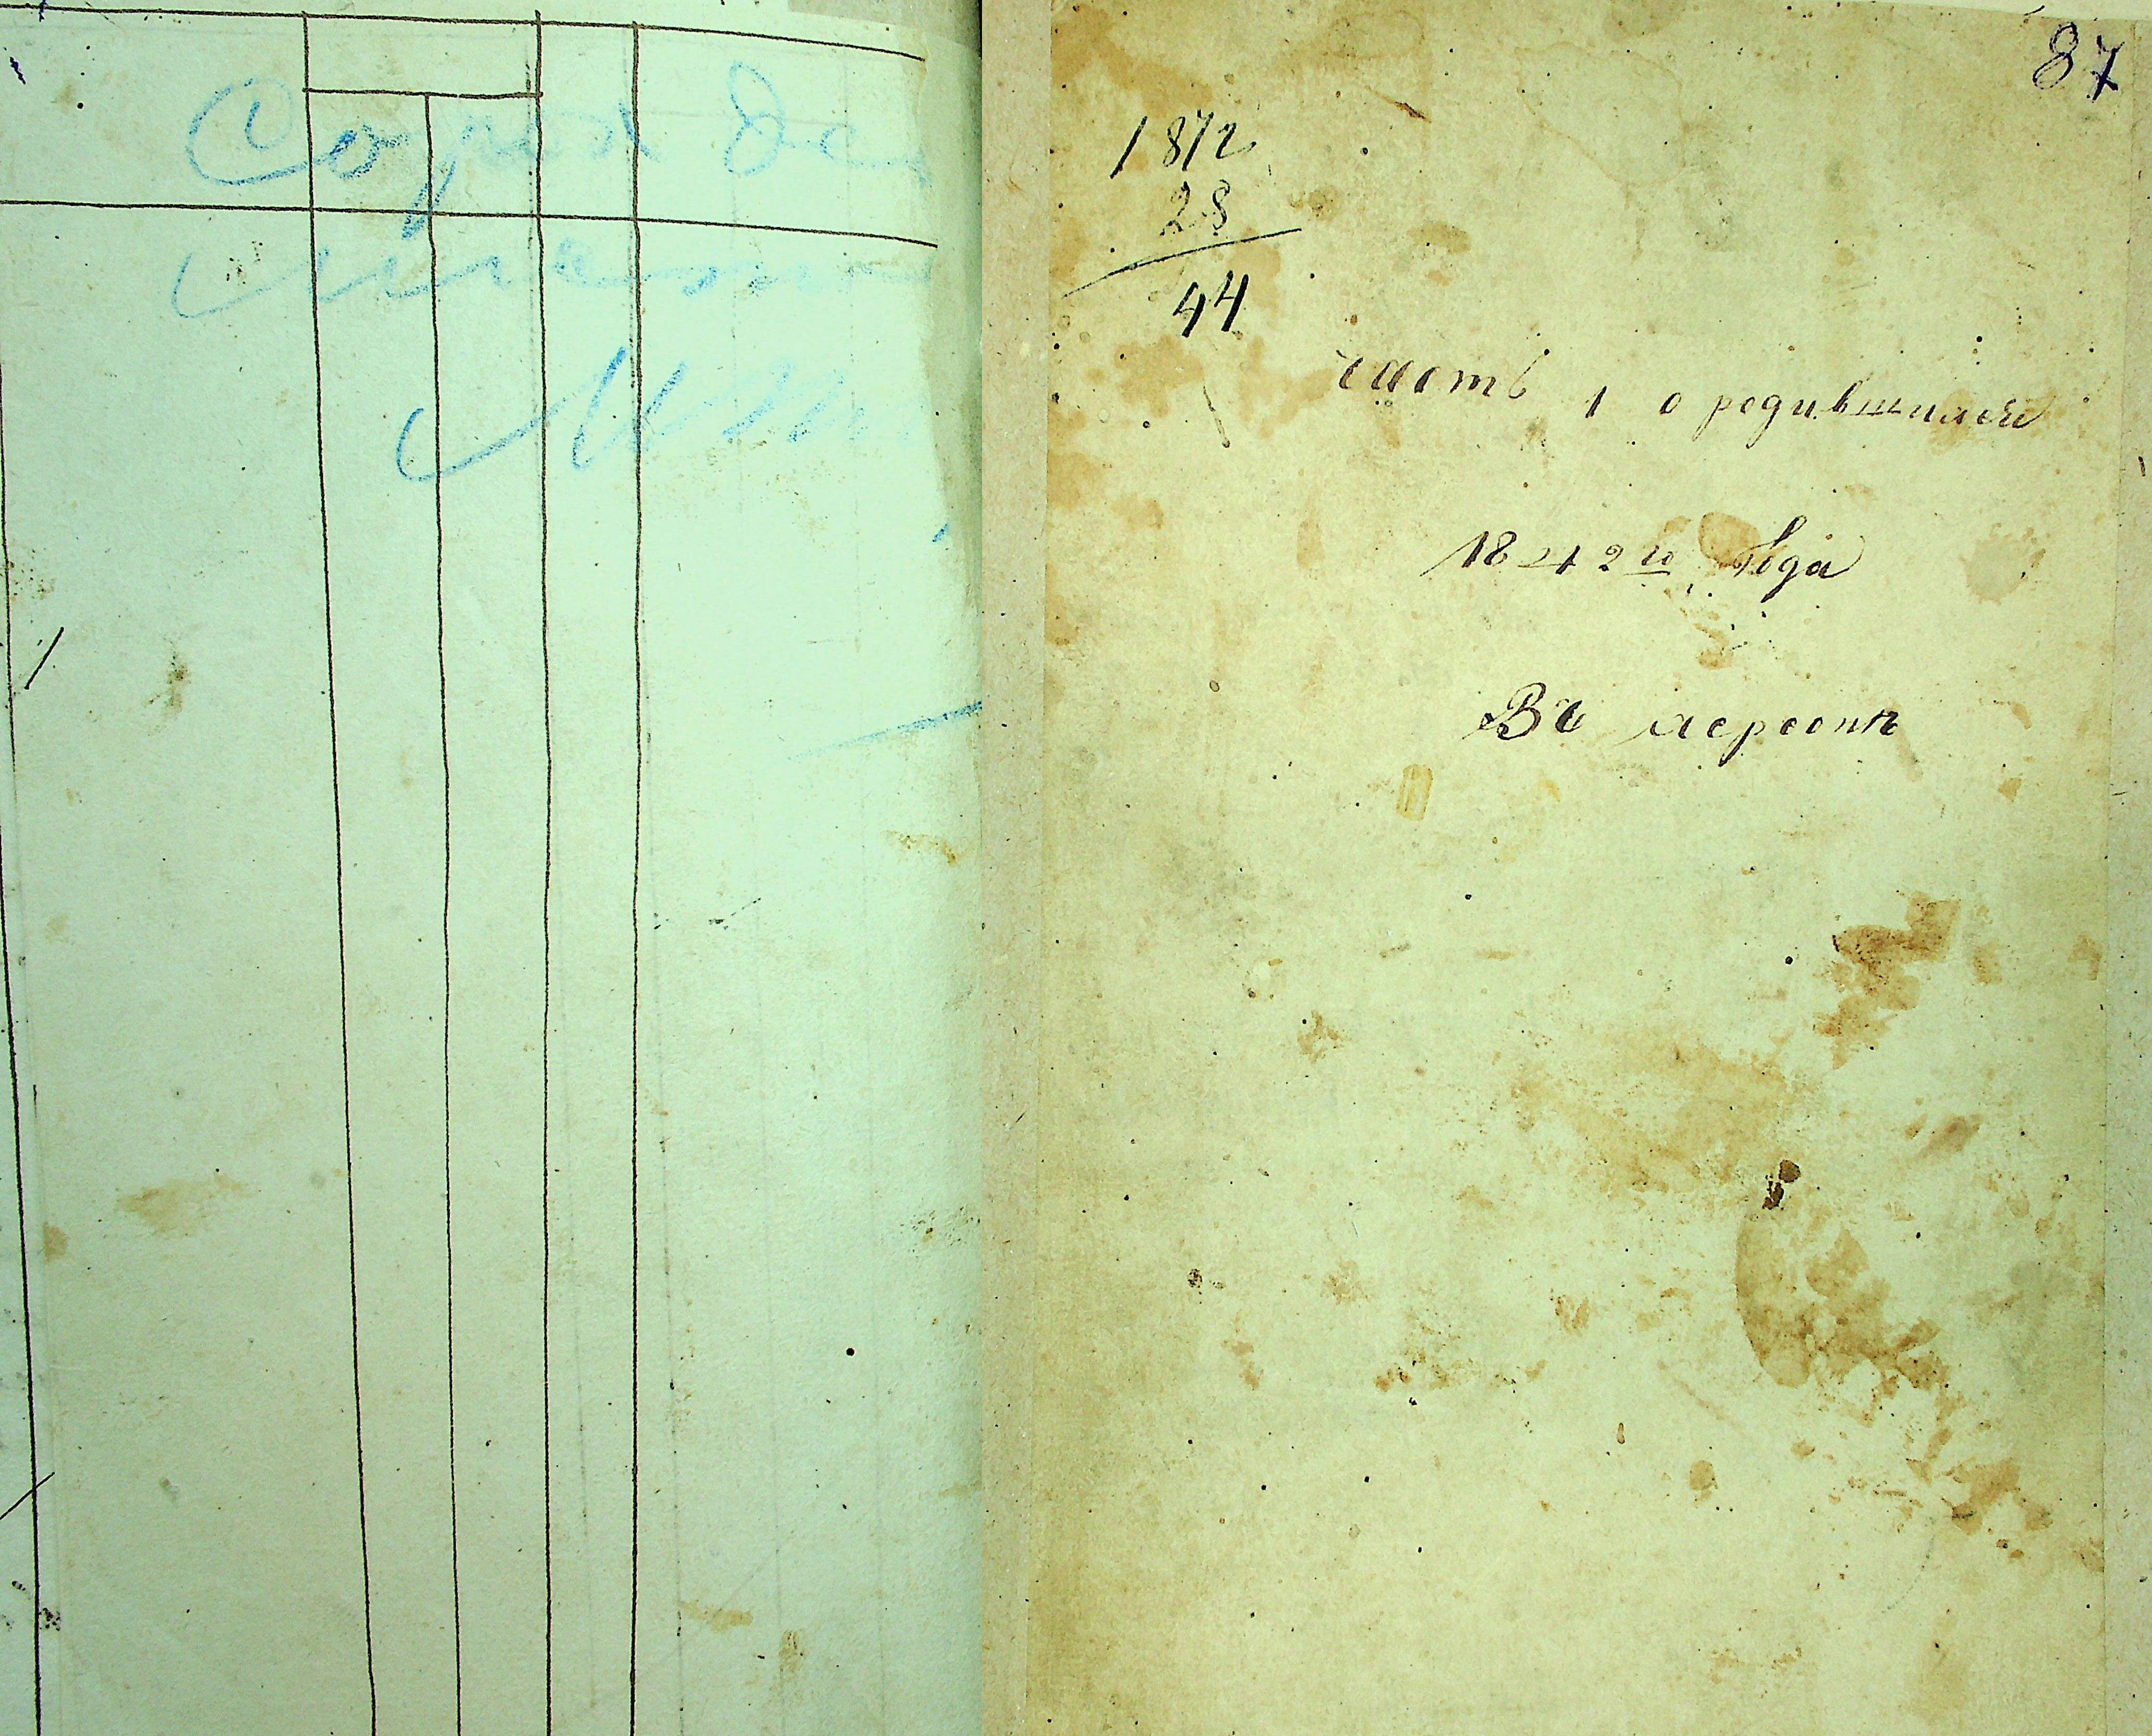 Сорок де
87
1872
28
44
часть 1 о родившихся
1842го Года
Въ херсонѣ